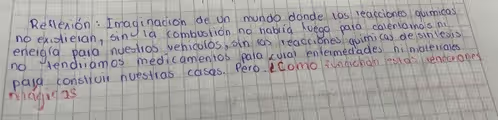 Reflexión: Imaginacion de un mundo donde las reacciones quimicas
no existieran, sin la combustión no habría fuego para calentarnos ni
energía para nuestros vehiculos, sin las reacciones quimicas de sintesis
no tendriamos medicamentos para curar enfermedades ni materiales
para construir nuestras casas. Pero ¿Como funcionan estas